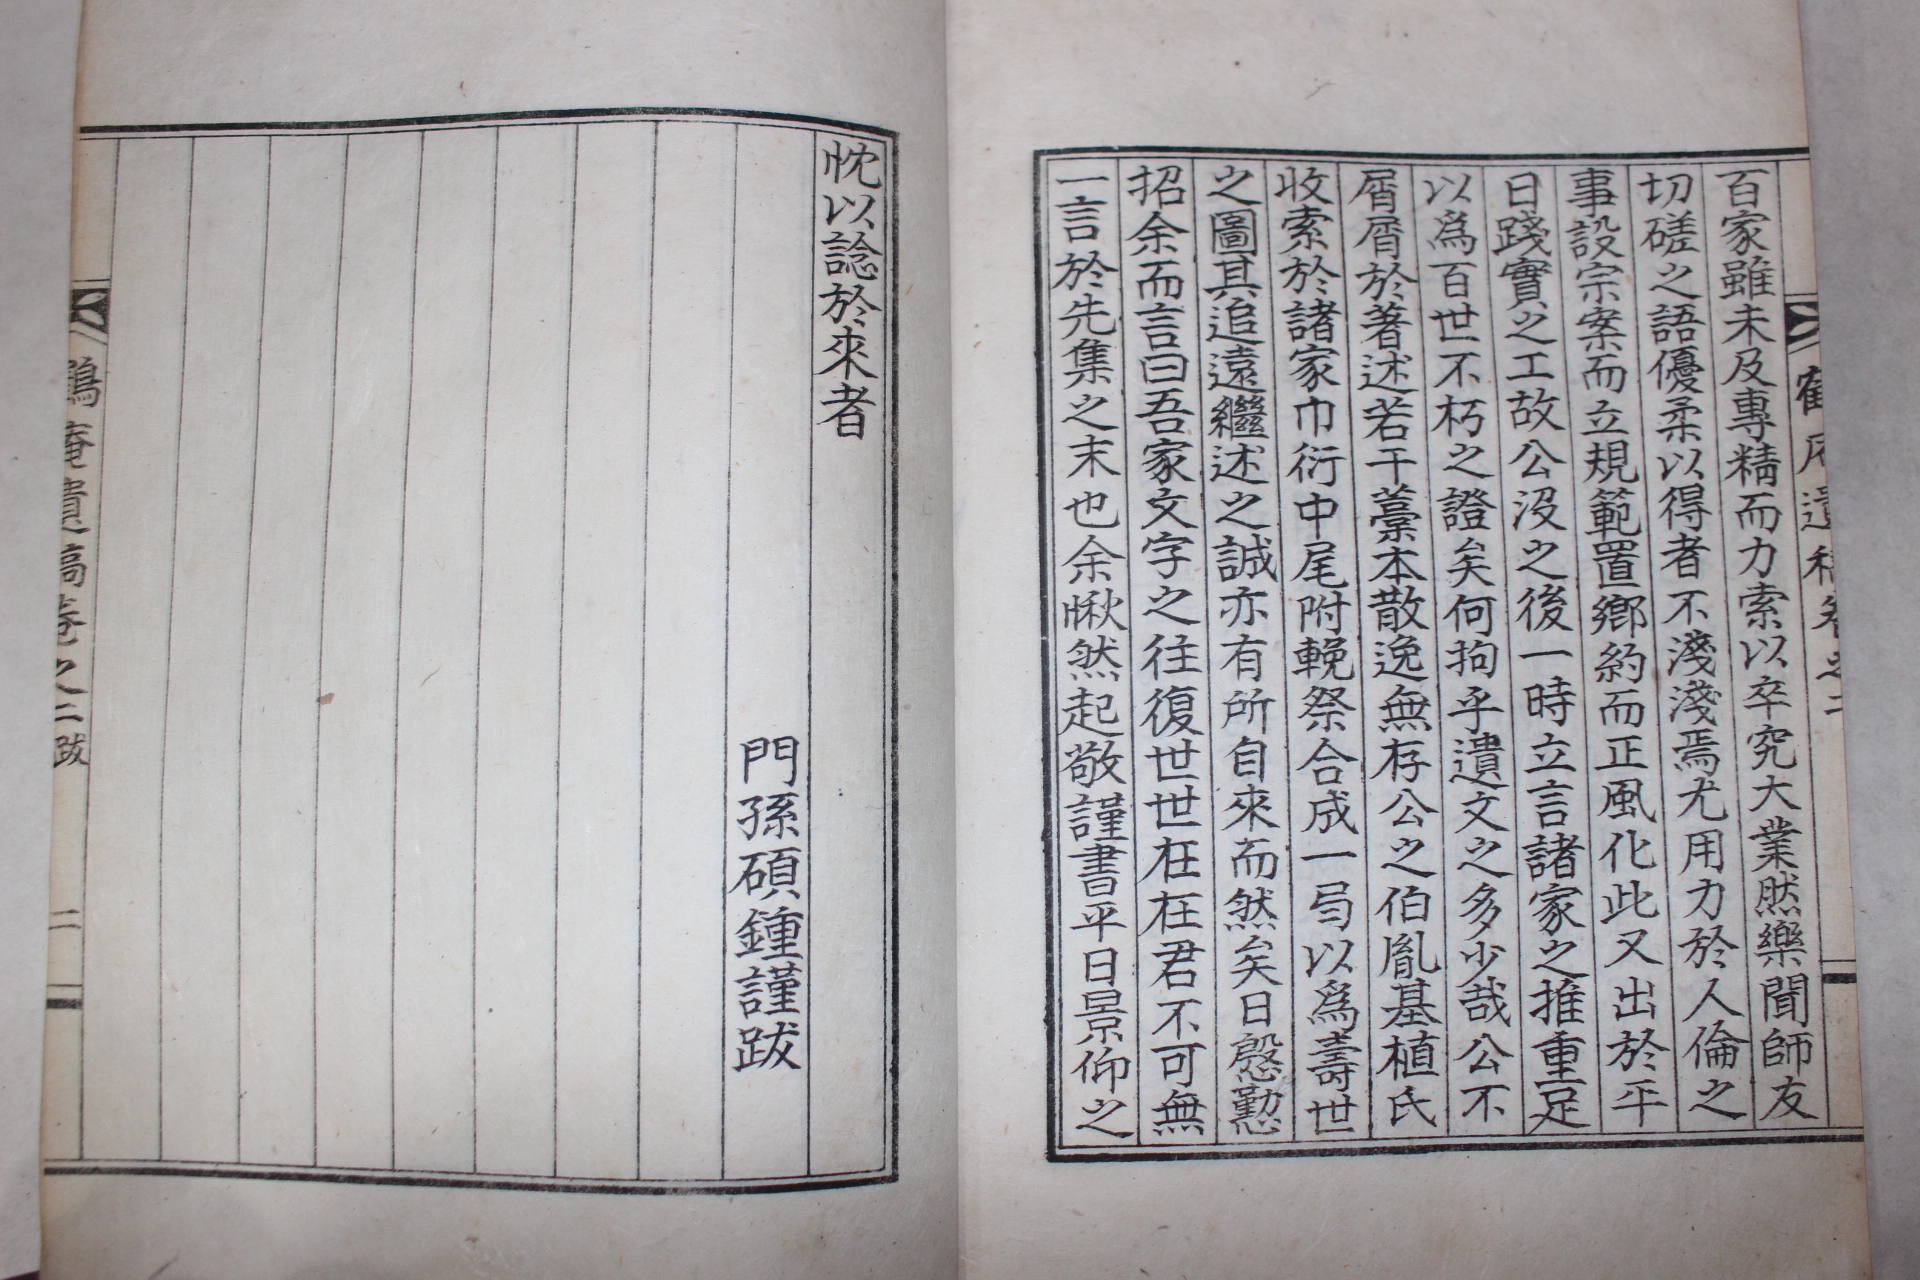 百家雖未及專精而力索以卒究大業然樂聞師友
切磋之語優柔以得者不淺淺焉尤用力於人倫之
事設宗案而立規範置鄕約而正風化此又出於平
日踐實之工故公沒之後一時立言諸家之推重足
以爲百世不朽之證矣何拘乎遺文之多少哉公不
屑屑於著述若干藁本散逸無存公之伯胤基植氏
收索於諸家巾衍中尾附輓祭合成一弓以爲壽世
之圖其追遠繼述之誠亦有所自來而然矣日慇懃
招余而言曰吾家文字之往復世世在在君不可無
一言於先集之末也余愀然起敬謹書平日景仰之
忱以諗於來者
門孫碩鍾謹跋
庵遺稿卷之二 跋 二